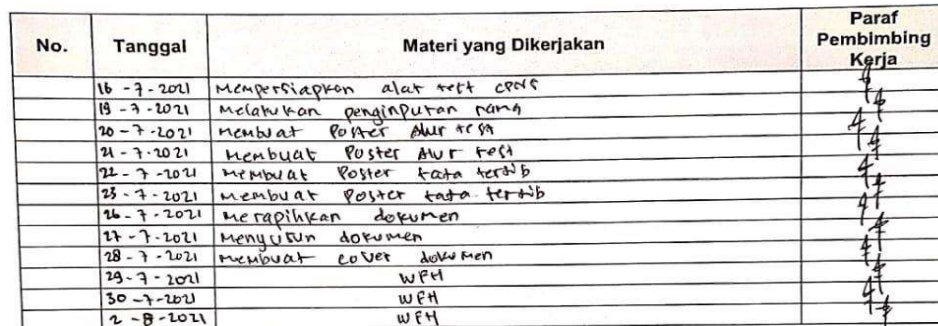 No. Tanggal Materi yang Dikerjakan Paraf Pembimbing Kerja
16 - 7 - 2021 Mempersiapkan alat test cpns
19 - 7 - 2021 Melakukan penginputan
20 - 7 - 2021 Membuat Poster Alur test
21 - 7 - 2021 Membuat Poster Alur test
22 - 7 - 2021 Membuat Poster tata tertib
23 - 7 - 2021 Membuat Poster tata tertib
26 - 7 - 2021 Merapihkan dokumen
27 - 7 - 2021 Menyusun dokumen
28 - 7 - 2021 Membuat cover dokumen
29 - 7 - 2021 WFH
30 - 7 - 2021 WFH
2 - 8 - 2021 WFH